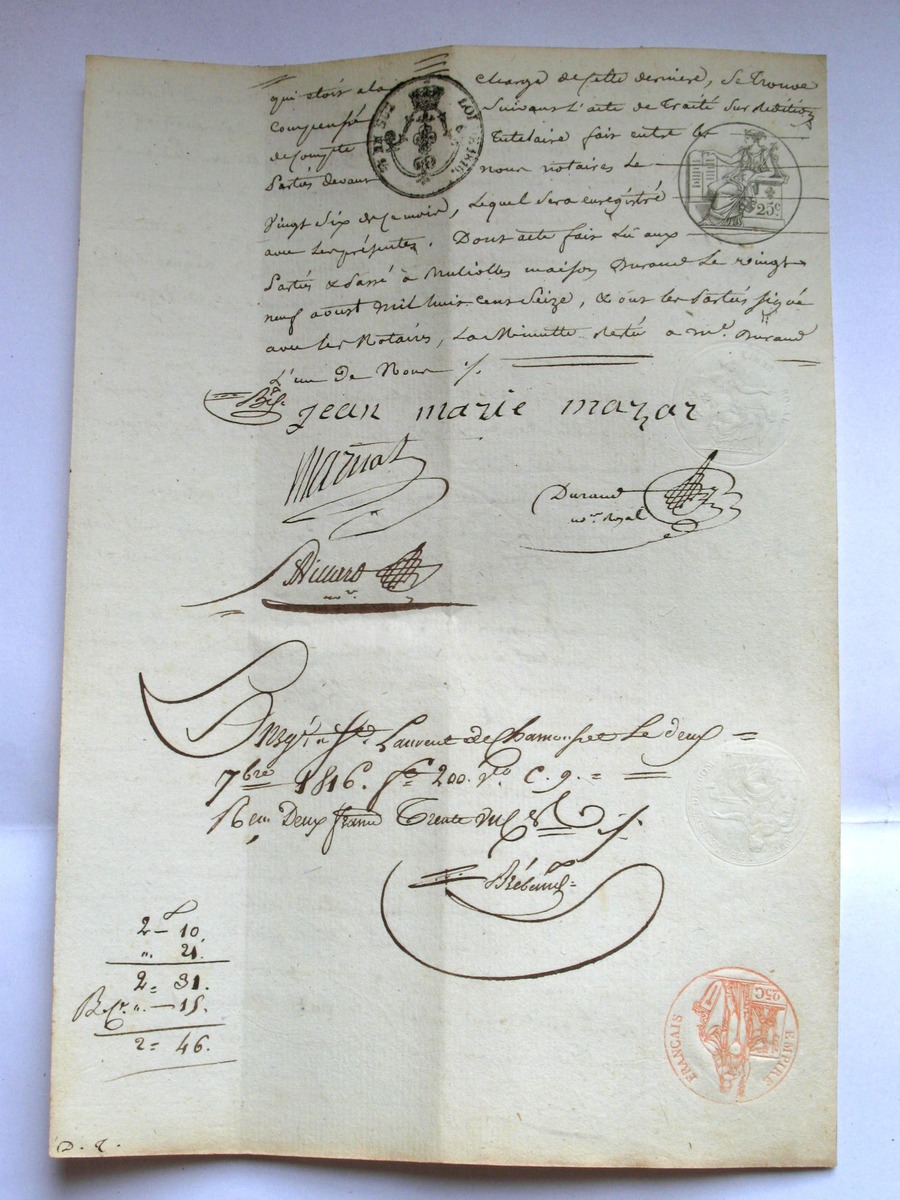 qui étoit a la charge de cette derniere, se trouve
compensé suivant l'acte de Traité sur reddition
de compte Tutelaire fait entre les
Parties devant nous notaires le
Vingt Six de ce mois, Lequel sera enregistré
avec les présentes. Dont acte fait Lu aux
Parties & Passé à maison Durand Le vingt
neuf aoust mil huit cent Seize, & ont les Parties signé
avec les Notaires, La Minutte resté a me. Durand
L'un De Nous
jean marie mazar
Durand
nore. Royal
Enregt. a St. Laurent de Chamousset Le deux
7bre 1816. fo 200. vo. C. 9.
Deux francs Trente
2 — 10
" 21.
2 = 31.
" — 15.
2 = 46.
D. T.
¼ EN SUS LOI de 1816.
25c.
EMPIRE FRANCAIS
25C